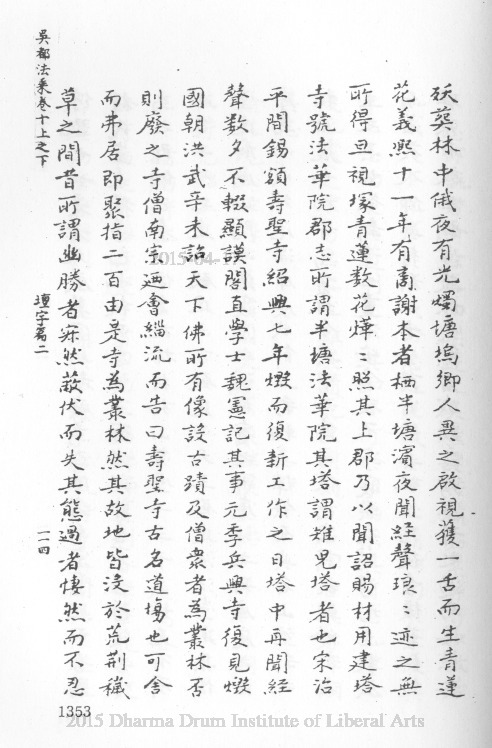 妖葵林中俄夜有光燭塘塢鄉人異之啟視獲一舌而生青蓮
花義熙十一年有商謝本者栖半塘濱夜聞経聲琅〻迹之無
所得旦視塚青蓮数花燁〻照其上郡乃以聞詔賜材用建塔
寺號法華院郡志所謂半塘法華院其塔謂雉兒塔者也宋治
平間錫額壽聖寺紹興七年燬而復新工作之日塔中再聞経
聲数夕不輟顯謨閣直學士魏憲記其事元季兵興寺復見燬
國朝洪武辛未詔天下佛所有像設古蹟及僧衆者為叢林否
則廢之寺僧南宗廼會緇流而告曰壽聖寺古名道塲也可舍
而弗居即聚指二百由是寺為叢林然其故地皆没於荒荆穢
草之間昔所謂幽勝者寂然蔽伏而失其態過者悽然而不忍
吳都法乘卷十上之下
壇宇篇二
一一四
1353
2015-04-
2015 Dharma Drum Institute of Liberal Arts